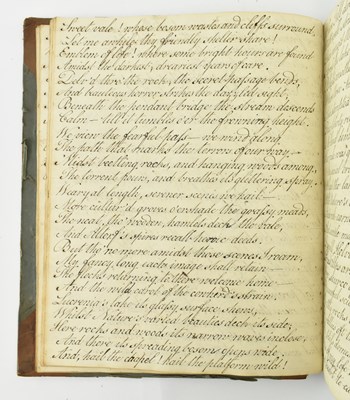 Sweet vale! whose bosom wastes and cliffs surround,
Let me awhile thy friendly shelter share!
Emblem of life! where some bright hours are found
Amidst the darkest, dreariest years of care.
Delv'd thro' the rock, the secret passage bends,
And beauteous horror strikes the dazzled sight;
Beneath the pendant bridge the stream descends
Calm — till it tumbles o'er the frowning height.
We view the fearful pass — we wind along
The path that marks the terrors of our way —
Midst beetling rocks, and hanging woods among,
The torrent pours, and breathes its glittering spray.
Weary at length, serener scenes we hail —
More cultur'd groves o'ershade the grassy meads,
The neat, tho' wooden, hamlets deck the vale,
And Altorf's spires recall heroic deeds.
But tho' no more amidst those scenes I roam,
My fancy long each image shall retain —
The flocks returning to their welcome home —
And the wild carol of the cowherd's strain.
Lucernia's lake its glassy surface shews,
Whilst Nature's varied beauties deck its side;
Here rocks and woods its narrow waves inclose,
And there its spreading bosom opens wide.
And, hail the chapel! hail the platform wild!